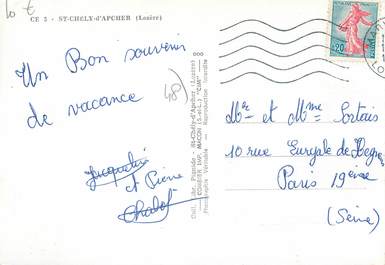 10 €
CE 3 - ST-CHELY-d'APCHER (Lozère)
Un Bon souvenir
de vacance
48
Jacqueline
et Pierre
Chabot
Coll. Lib. Papeterie - St-Chély-d'Apcher (Lozère)
COMBIER IMP. MACON (S.-et-L.) "CIM"
Photographie Véritable - Reproduction Interdite
0,20
Mr et Mme Sortais
10 rue Euryale de
Paris 19eme
(Seine)